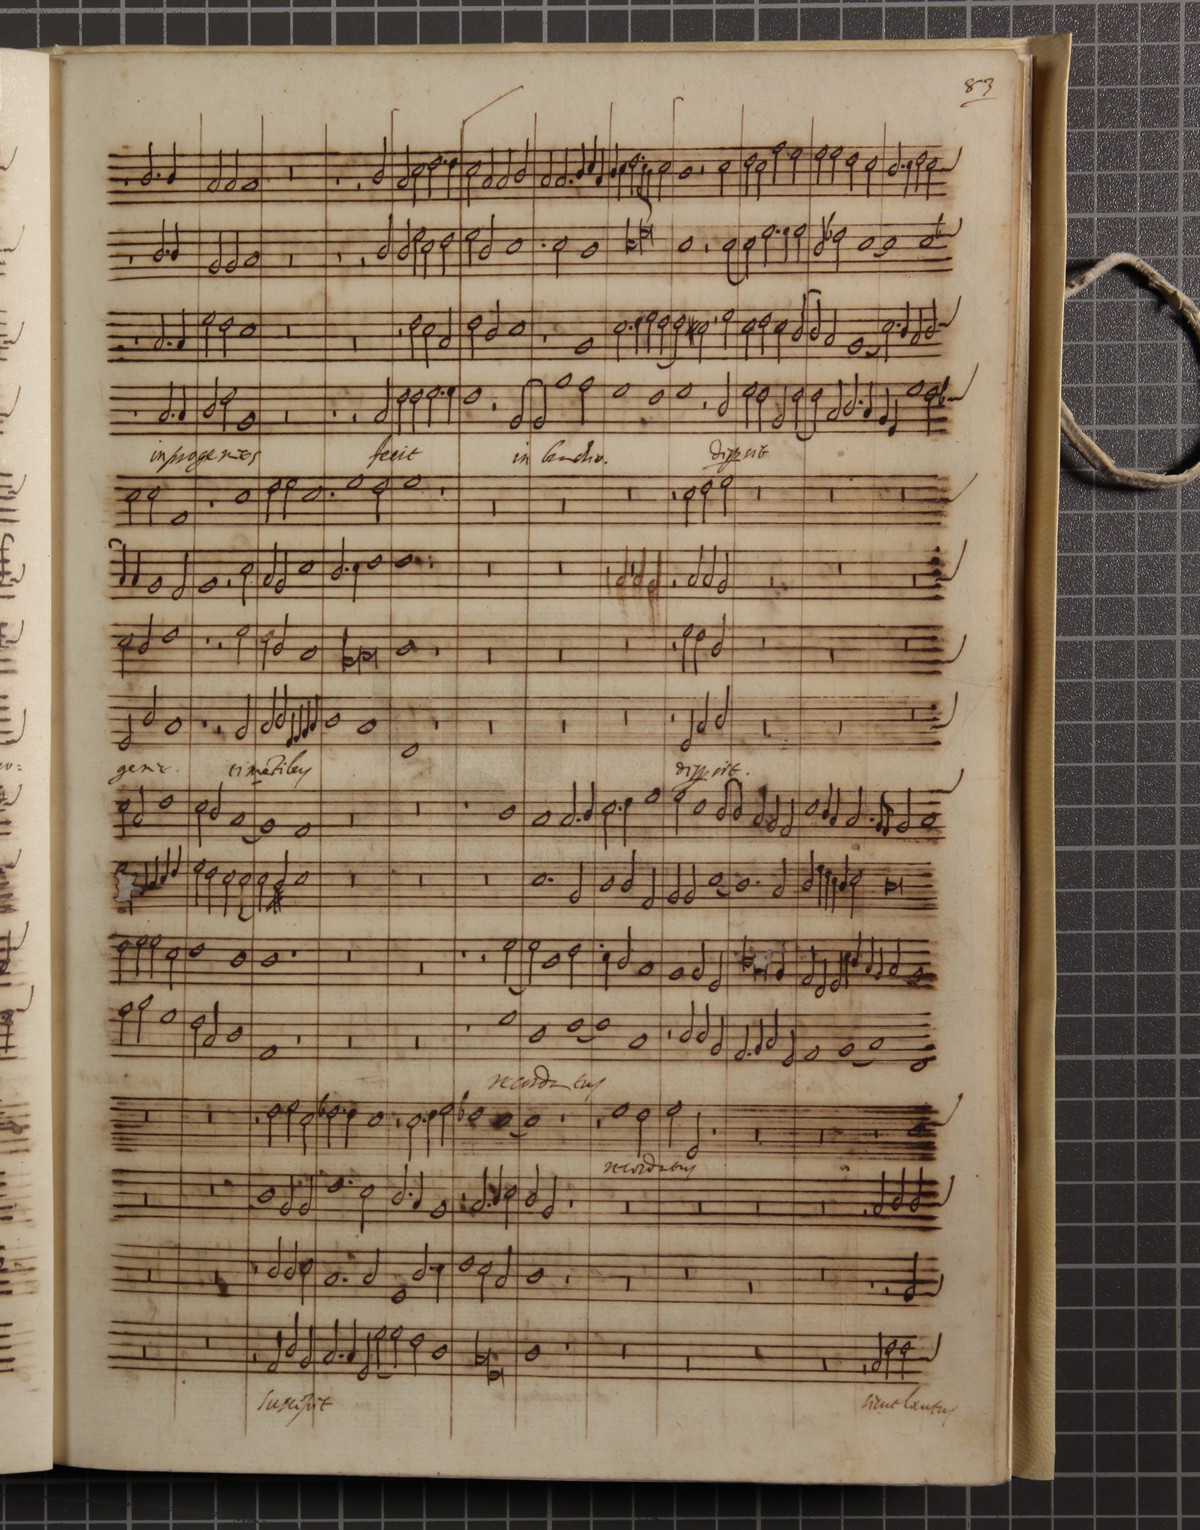 83
in progenies fecit in brachio. dispsit
genie. timentibus dispsit.
recordatus
recordatus
suscepit sicut locutus